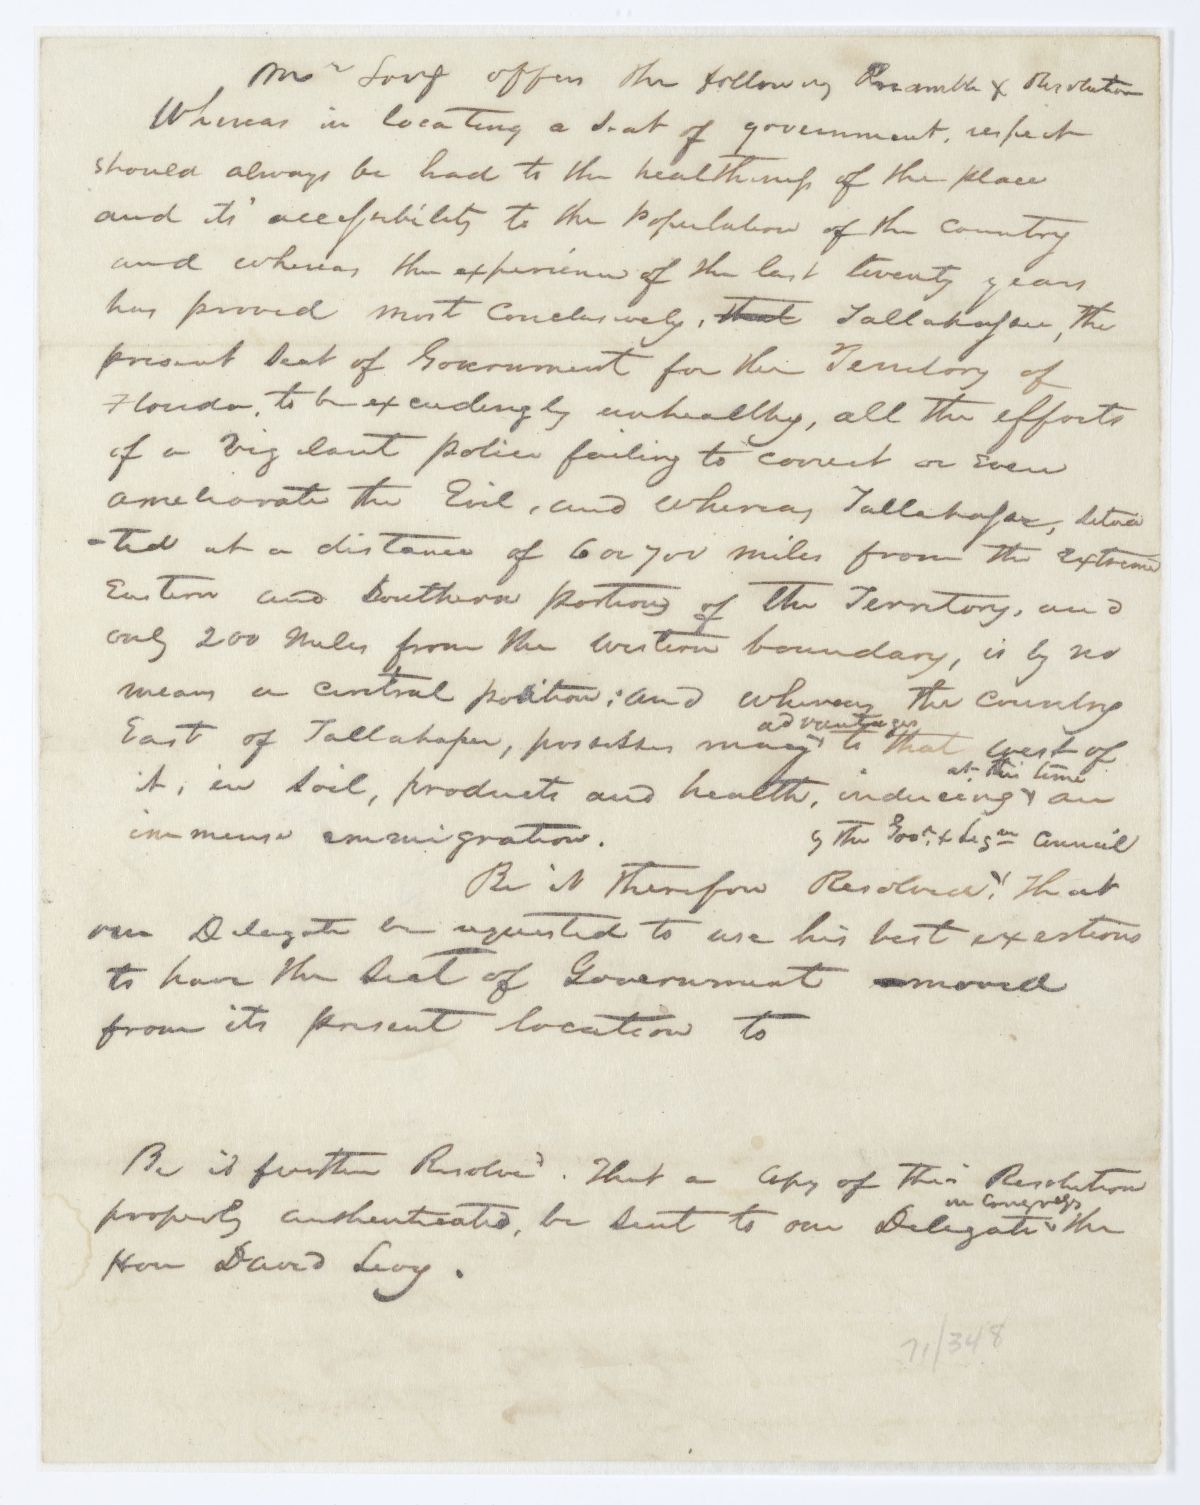 Mr Long offers the following Preamble & Resolution
Whereas in locating a Seat of government, respect
should always be had to the healthiness of the place
and its' accessibility to the Population of the Country
and whereas the experience of the last twenty years
has proved most Conclusively, that Tallahassee, the
present Seat of Government for the Territory of
Florida, to be exceedingly unhealthy, all the efforts
of a Vigilant police failing to correct or even
ameliorate the Evil, and whereas Tallahassee, situa
-ted at a distance of 6 or 700 miles from the extreme
Eastern and Southern portions of the Territory, and
only 200 Miles from the Western boundary, is by no
means a central position: and whereas the country
advantages
East of Tallahassee, possesses many to that west of
at this time
it, in Soil, products and health, inducing an
immense emmigration.
by the Govr. & Legve Council
Be it therefore Resolved, That
our Delegate be requested to use his best exertions
to have the Seat of Government moved
from its present location to
Be it further Resolved. That a Copy of this Resolution
in Congress
properly authenticated, be Sent to our Delegate the
Hon David Levy.
71/348